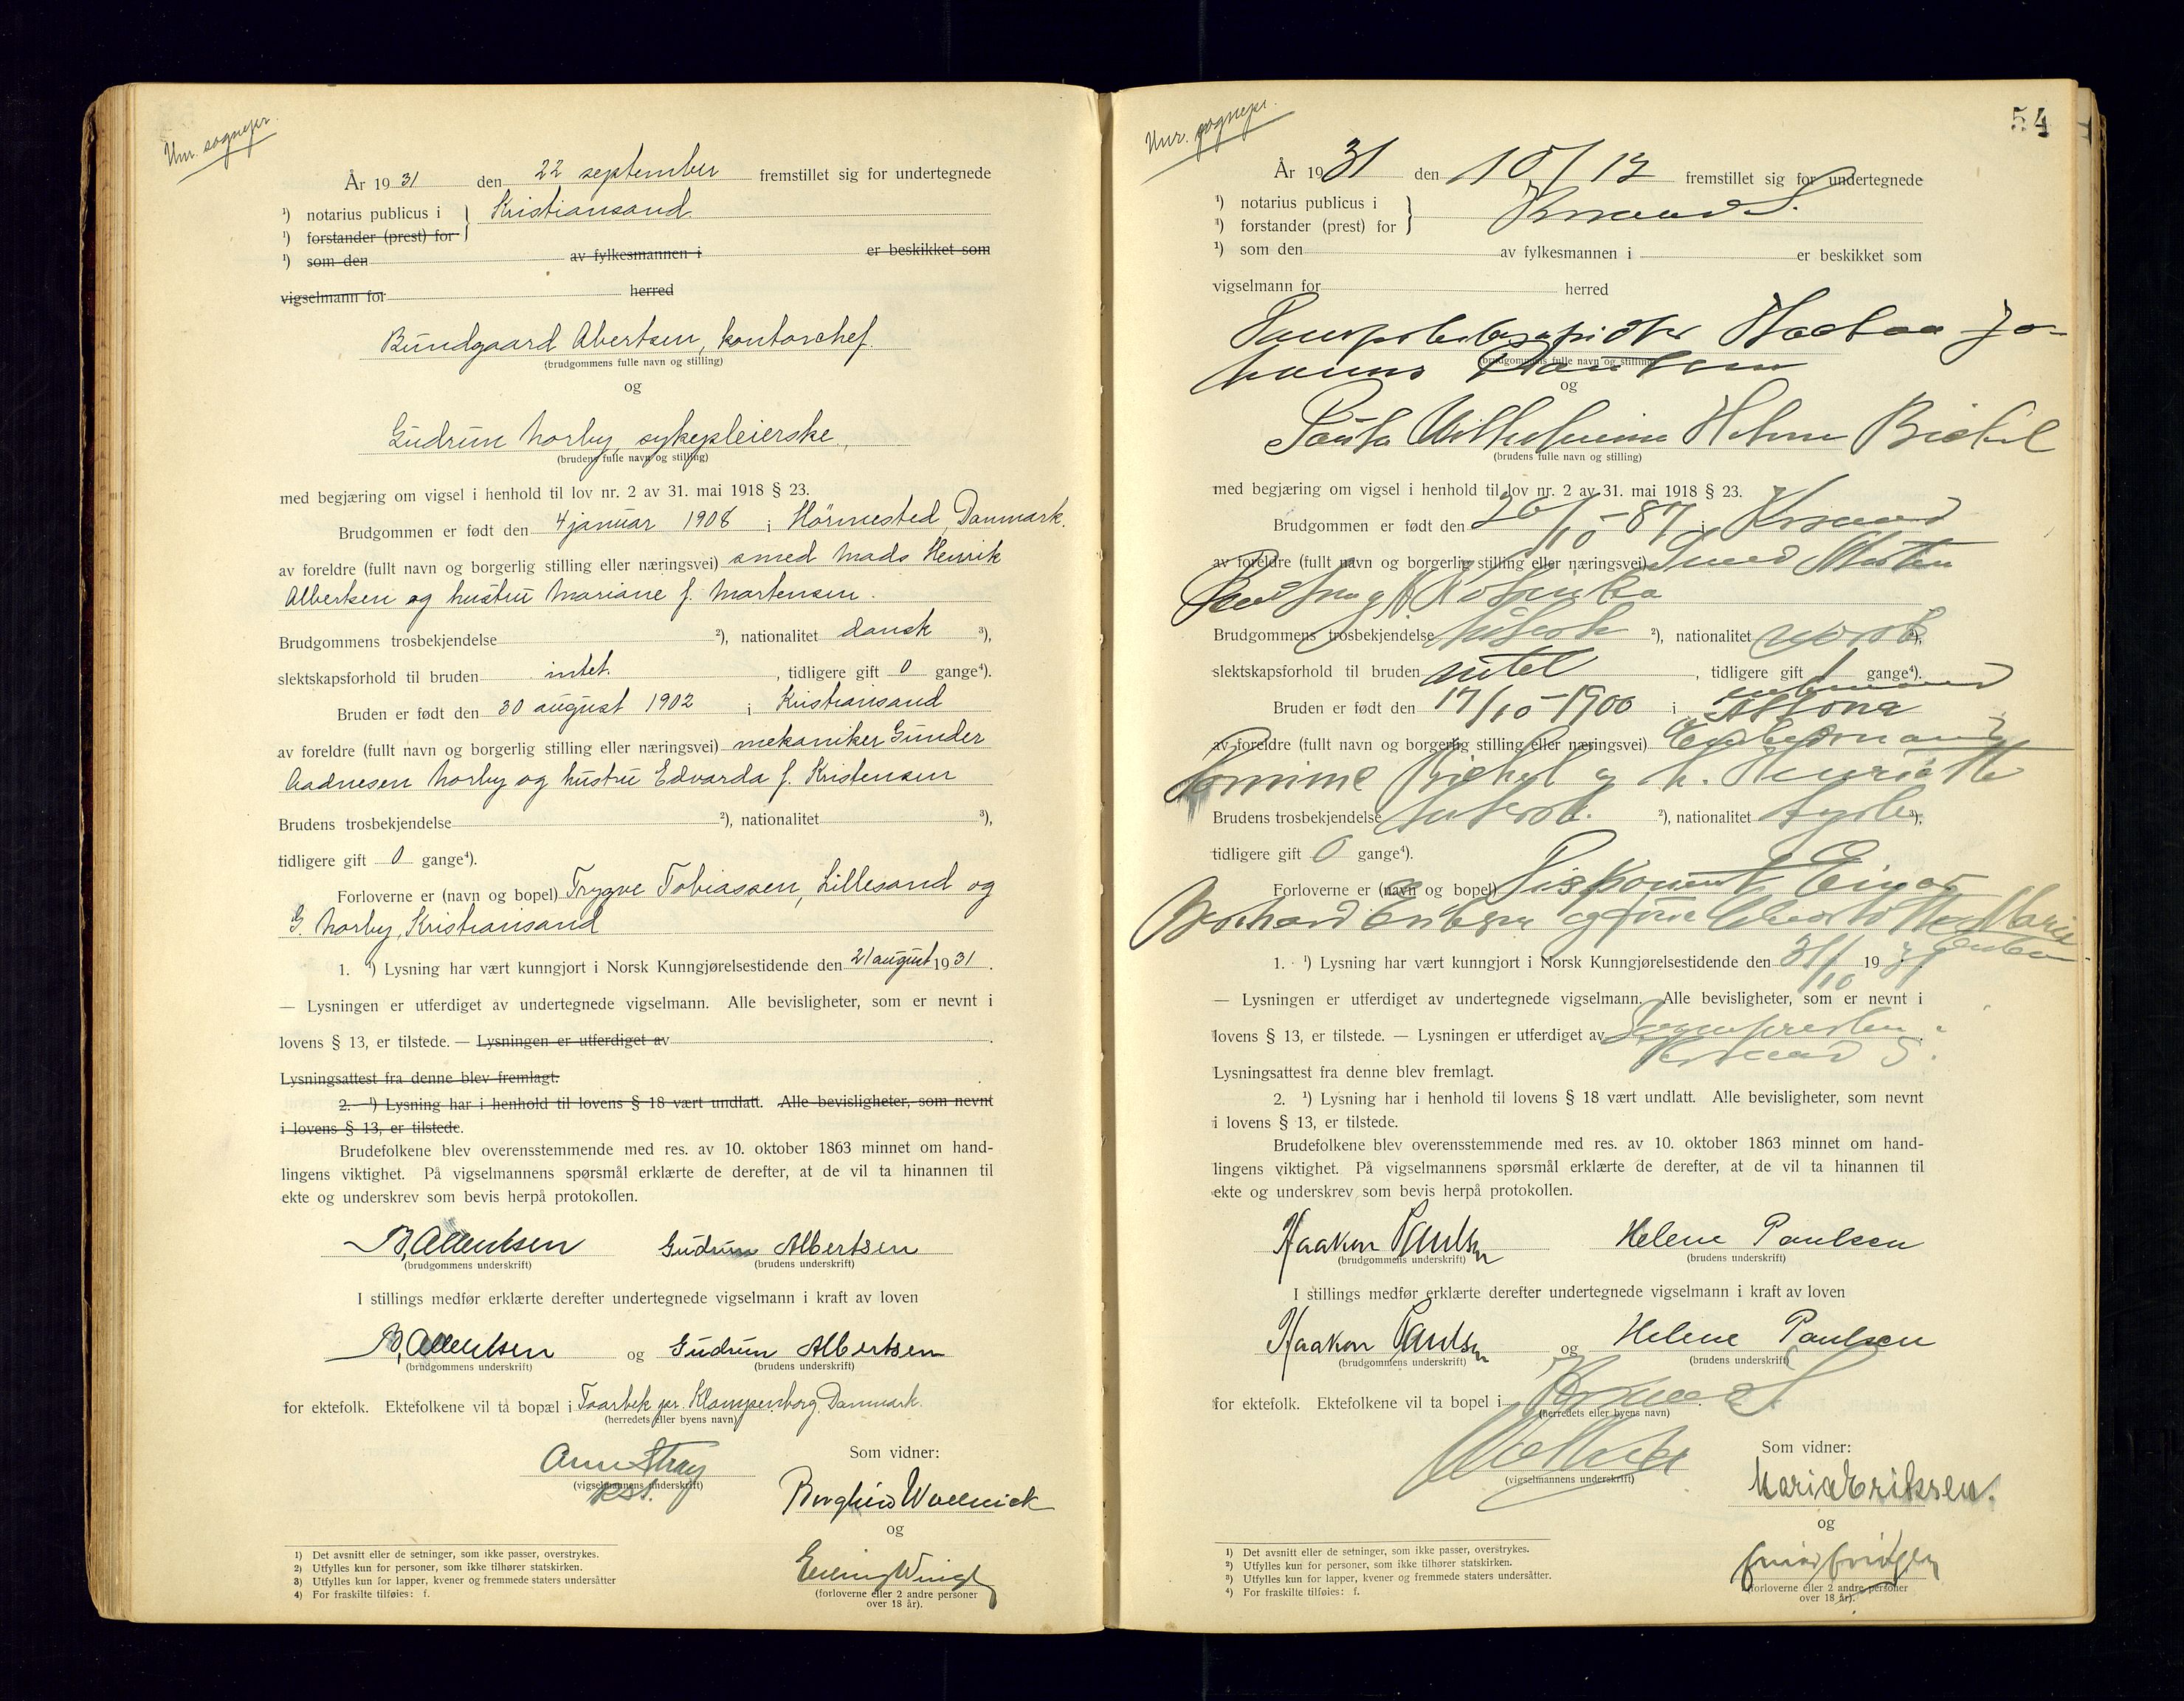 sognepr.
År 1931 den 22 september fremstillet sig for undertegnede
¹) notarius publicus i } Kristiansand
¹) forstander (prest) for
¹) som den av fylkesmannen i er beskikket som
vigselmann for herred
Bundgaard Abertsen, kontorchef.
(brudgommens fulle navn og stilling)
og
Gudrun Norby, sykepleierske,
(brudens fulle navn og stilling)
med begjæring om vigsel i henhold til lov nr. 2 av 31. mai 1918 § 23.
Brudgommen er født den 4 januar 1908 i Hörmested, Danmark.
av foreldre (fullt navn og borgerlig stilling eller næringsvei) smed Mads Henrik
Albertsen og hustru Mariane f. Martensen.
Brudgommens trosbekjendelse ²), nationalitet dansk ³),
slektskapsforhold til bruden intet. , tidligere gift 0 gange⁴).
Bruden er født den 30 august 1902 i Kristiansand
av foreldre (fullt navn og borgerlig stilling eller næringsvei) mekaniker Gunder
Aadnesen Norby og hustru Edvarda f. Kristensen
Brudens trosbekjendelse ²), nationalitet ³),
tidligere gift 0 gange⁴).
Forloverne er (navn og bopel) Trygve Tobiassen, Lillesand og
G. Norby, Kristiansand
1. ¹) Lysning har vært kunngjort i Norsk Kunngjørelsestidende den 21 august 1931.
— Lysningen er utferdiget av undertegnede vigselmann. Alle bevisligheter, som er nevnt i
lovens § 13, er tilstede. — Lysningen er utferdiget av
Lysningsattest fra denne blev fremlagt.
2. ¹) Lysning har i henhold til lovens § 18 vært undlatt. Alle bevisligheter, som nevnt
i lovens § 13, er tilstede.
Brudefolkene blev overensstemmende med res. av 10. oktober 1863 minnet om hand-
lingens viktighet. På vigselmannens spørsmål erklærte de derefter, at de vil ta hinannen til
ekte og underskrev som bevis herpå protokollen.
B. Albertsen Gudrun Albertsen
(brudgommens underskrift) (brudens underskrift)
I stillings medfør erklærte derefter undertegnede vigselmann i kraft av loven
B. Albertsen og Gudrun Albertsen
(brudgommens underskrift) (brudens underskrift)
for ektefolk. Ektefolkene vil ta bopæl i Taarbek pr. Klampenborg, Danmark.
(herredets eller byens navn)
Stray
(vigselmannens underskrift)
Som vidner:
og
(forloverne eller 2 andre personer
over 18 år).
1) Det avsnitt eller de setninger, som ikke passer, overstrykes.
2) Utfylles kun for personer, som ikke tilhører statskirken.
3) Utfylles kun for lapper, kvener og fremmede staters undersåtter
4) For fraskilte tilføies: f.
sognepr.
54
År 1931 den 10/12 fremstillet sig for undertegnede
¹) notarius publicus i } Krsand S.
¹) forstander (prest) for
¹) som den av fylkesmannen i er beskikket som
vigselmann for herred
Haakon Jo-
hannes Paulsen
(brudgommens fulle navn og stilling)
og
Paula Wilhelmine Helene Bichel
(brudens fulle navn og stilling)
med begjæring om vigsel i henhold til lov nr. 2 av 31. mai 1918 § 23.
Brudgommen er født den 26/10-87 i Krsand
av foreldre (fullt navn og borgerlig stilling eller næringsvei) Smed
Brudgommens trosbekjendelse ²), nationalitet norsk ³),
slektskapsforhold til bruden intet , tidligere gift 1 gange⁴).
Bruden er født den 17/10-1900 i Altona
av foreldre (fullt navn og borgerlig stilling eller næringsvei)
Bichel og h. Henriette
Brudens trosbekjendelse luthersk. ²), nationalitet tysk ³),
tidligere gift 0 gange⁴).
Forloverne er (navn og bopel) Disponent Einar
og frue
1. ¹) Lysning har vært kunngjort i Norsk Kunngjørelsestidende den 31/10 1931.
— Lysningen er utferdiget av undertegnede vigselmann. Alle bevisligheter, som er nevnt i
lovens § 13, er tilstede. — Lysningen er utferdiget av Sognepresten i
Krsand S.
Lysningsattest fra denne blev fremlagt.
2. ¹) Lysning har i henhold til lovens § 18 vært undlatt. Alle bevisligheter, som nevnt
i lovens § 13, er tilstede.
Brudefolkene blev overensstemmende med res. av 10. oktober 1863 minnet om hand-
lingens viktighet. På vigselmannens spørsmål erklærte de derefter, at de vil ta hinannen til
ekte og underskrev som bevis herpå protokollen.
Haakon Paulsen Helene Paulsen
(brudgommens underskrift) (brudens underskrift)
I stillings medfør erklærte derefter undertegnede vigselmann i kraft av loven
Haakon Paulsen og Helene Paulsen
(brudgommens underskrift) (brudens underskrift)
for ektefolk. Ektefolkene vil ta bopel i Krsand S.
(herredets eller byens navn)
(vigselmannens underskrift)
Som vidner:
Maria Eriksen.
og
(forloverne eller 2 andre personer
over 18 år).
1) Det avsnitt eller de setninger, som ikke passer, overstrykes.
2) Utfylles kun for personer, som ikke tilhører statskirken.
3) Utfylles kun for lapper, kvener og fremmede staters undersåtter.
4) For fraskilte tilføies: f.